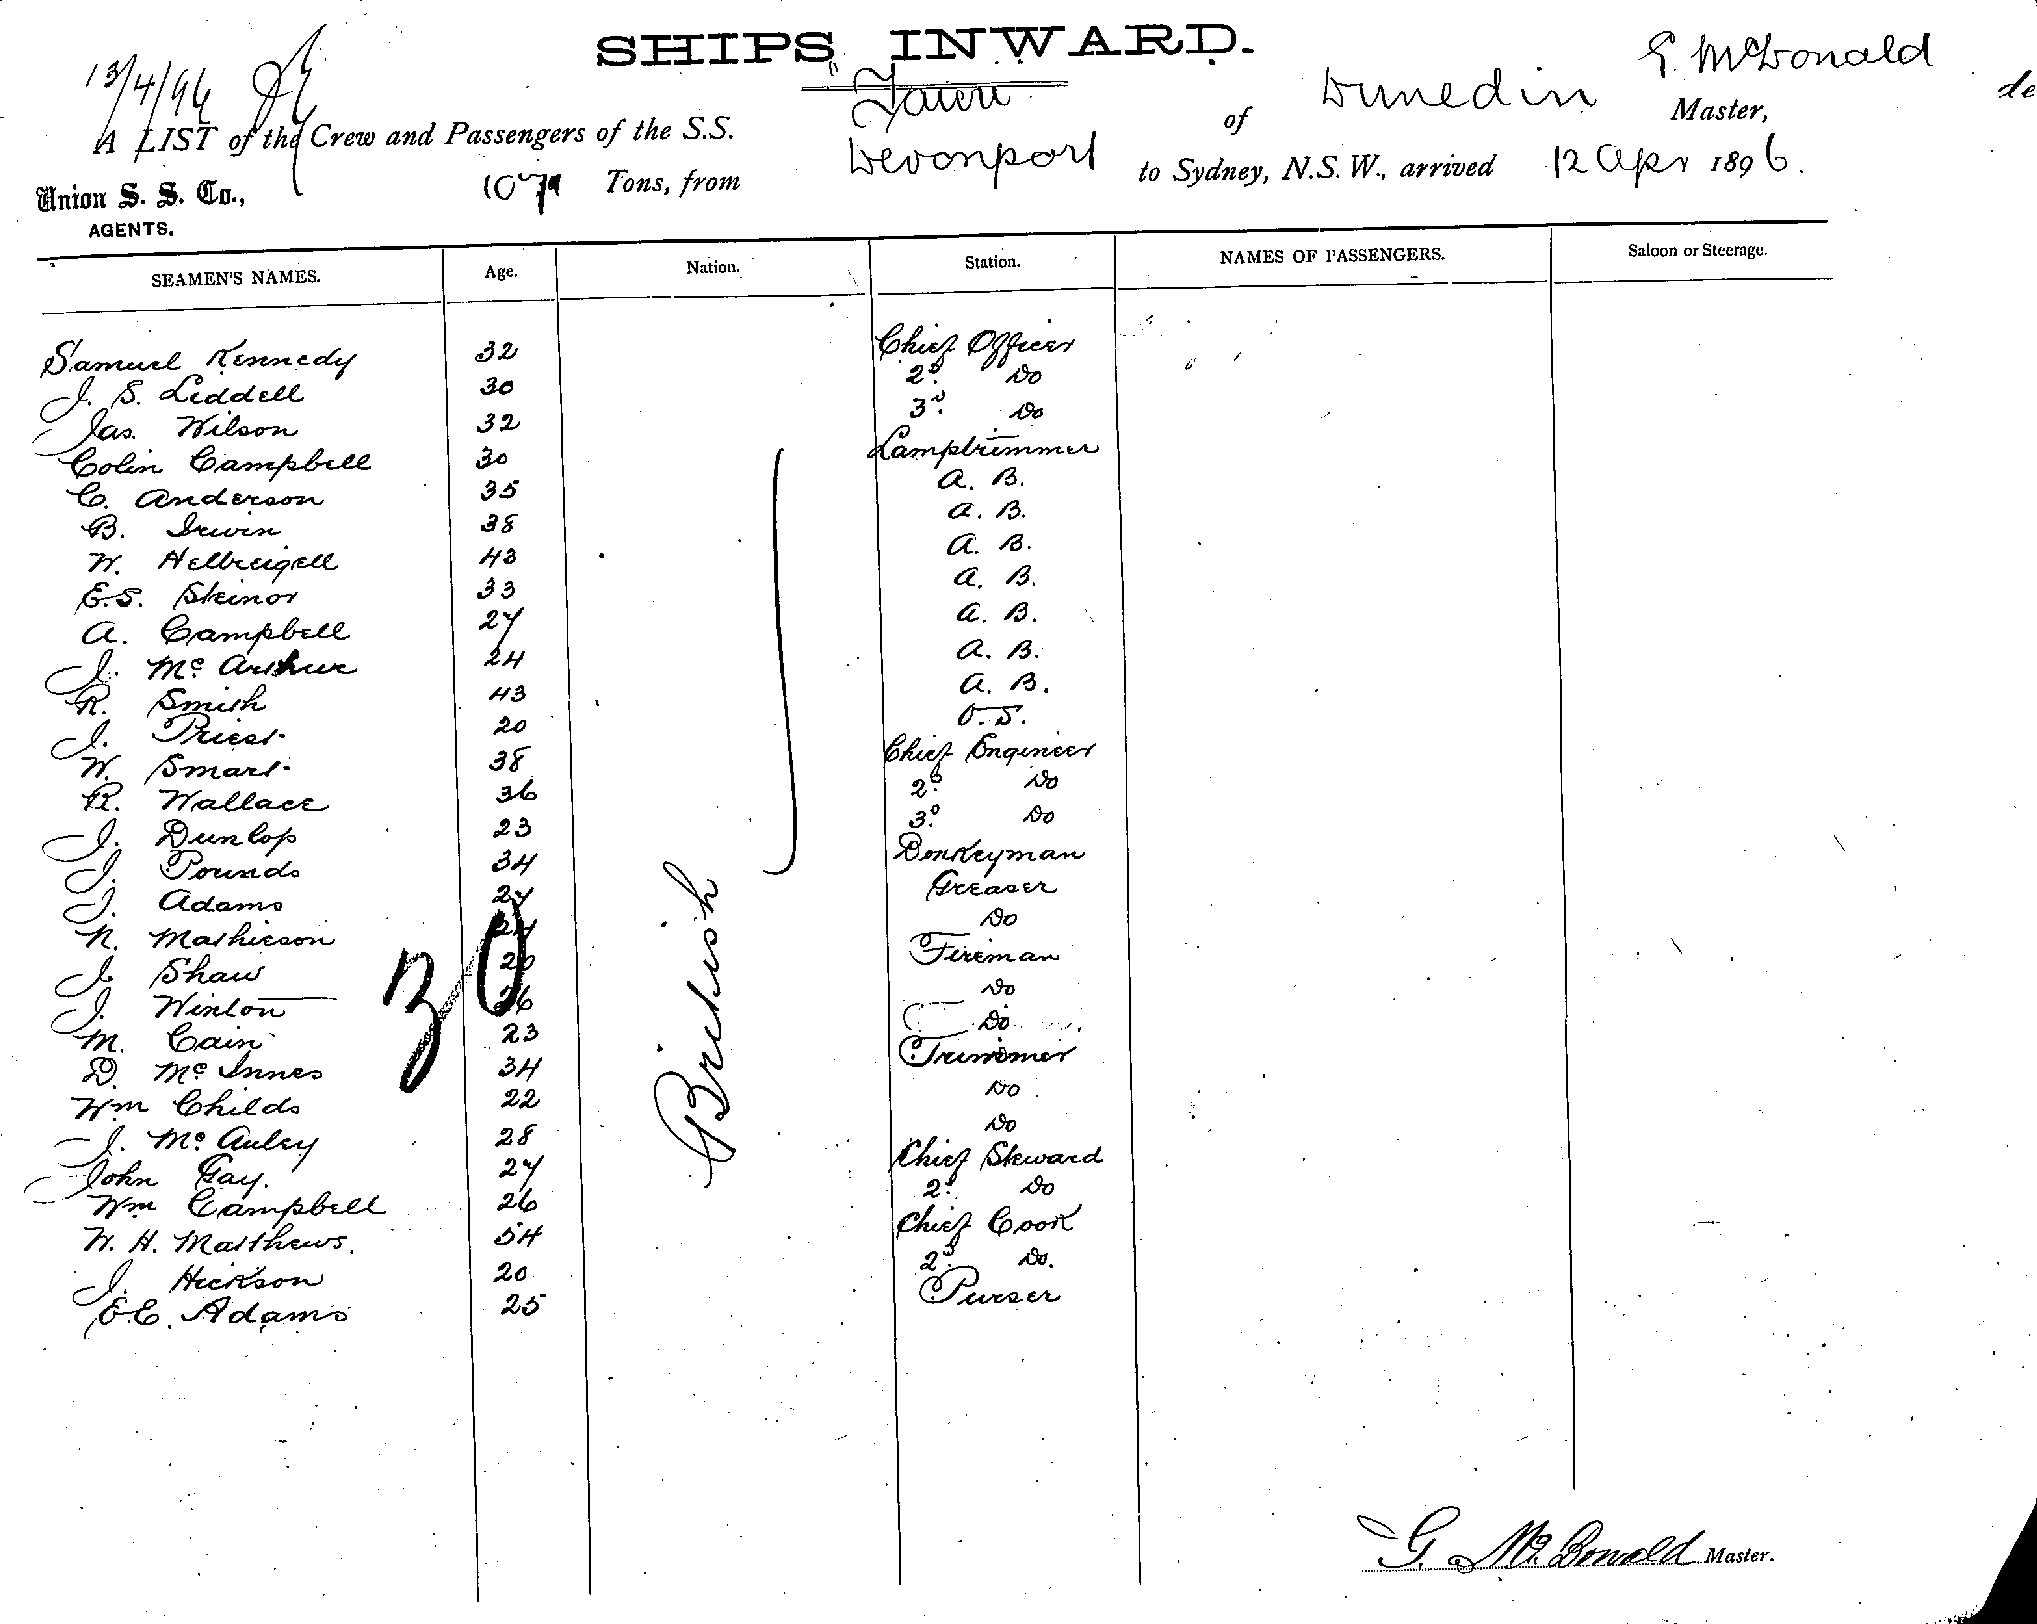 SHIPS INWARD.
13/4/96
G. McDonald
A LIST of the Crew and Passengers of the S.S. Taieri of Dunedin Master,
Union S. S. Co., Tons, from Devonport to Sydney, N.S.W., arrived 12 Apr 1896.
AGENTS.
SEAMEN'S NAMES. Age. Nation. Station. NAMES OF PASSENGERS. Saloon or Steerage.
Samuel Kennedy 32 Chief Officer
J. S. Liddell 30 2d. Do
Jas. Wilson 32 3d. Do
Colin Campbell 30 Lamptrimmer
C. Anderson 35 A. B.
B. Irwin 38 A. B.
W. Helbreigell 43 A. B.
E.S. Skinor 33 A. B.
A. Campbell 27 A. B.
J. Mc Arthur 24 A. B.
R. Smith 43 A. B.
J. Priest 20 O.S.
W. Smart 38 Chief Engineer
R. Wallace 36 2d. Do
J. Dunlop 23 3d. Do
J. Pounds 34 Donkeyman
J. Adams 27 Greaser
N. Mathieson Do
J. Shaw 26 Fireman
J. Winton 26 Do
M. Cain 23 Do
D. Mc Innes 34 Trimmer
Wm Childs 22 Do
J. Mc Auley 28 Do
John Gay. 27 Chief Steward
Wm Campbell 26 2d. Do
W. H. Matthews. 54 Chief Cook
J. Hickson 20 2d. Do.
E.C. Adams 25 Purser
British
30
G. McDonald Master.